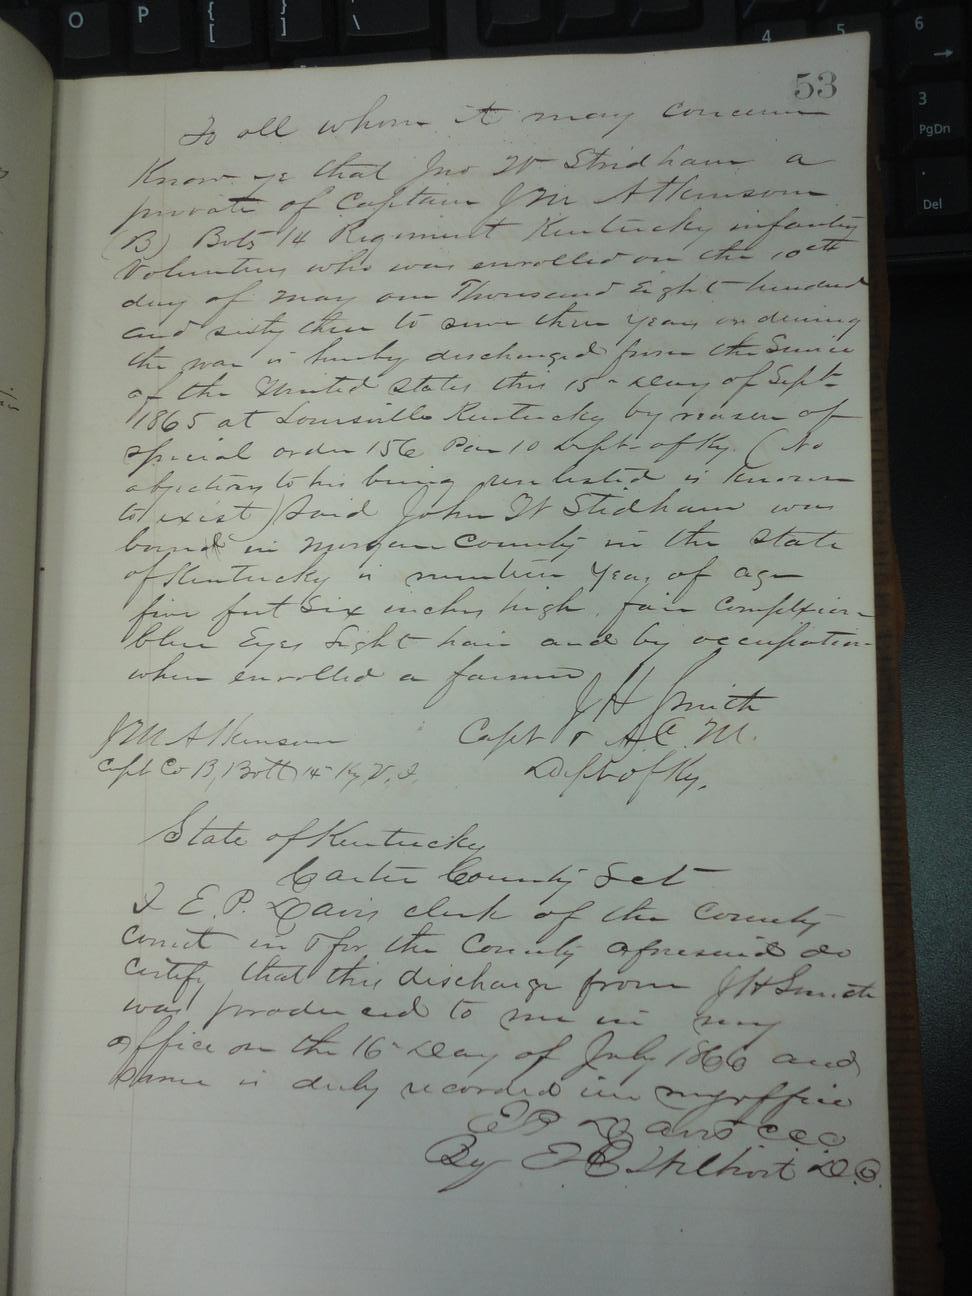 O P { [ } ] | \ 4 5 6 →
3 PgDn
. Del
53
To all whom it may concern
Know ye that Jno W Stridham a
private of Captain J M Atkinson
(B) Bots 14 Regiment Kentucky infantry
Volunteers who was enrolled on the 10th
day of May one Thousand Eight hundred
and sixty three to serve three years or during
the war is hereby discharged from the Service
of the United States this 15" Day of Sept
1865 at Louisville Kentucky by reason of
special order 156 Par 10 Dept of Ky. (No
objection to his being reenlisted is known
to exist) Said John W Stidham was
born in Morgan County in the State
of Kentucky is nineteen Years of age
five feet Six inches high fair Complexion
blue Eyes Light hair and by occupation
when enrolled a farmer
J H Smith
J M Atkinson Capt & A C M.
Capt Co B, Batt 14" Ky V. I. Dept of Ky.
State of Kentucky
Carter County Sct
I E. P. Davis clerk of the County
Court in & for the County aforesaid do
certify that this discharge from J H Smith
was produced to me in my
office on the 16" Day of July 1866 and
same is duly recorded in my office
E P Davis C C C
By D. C.